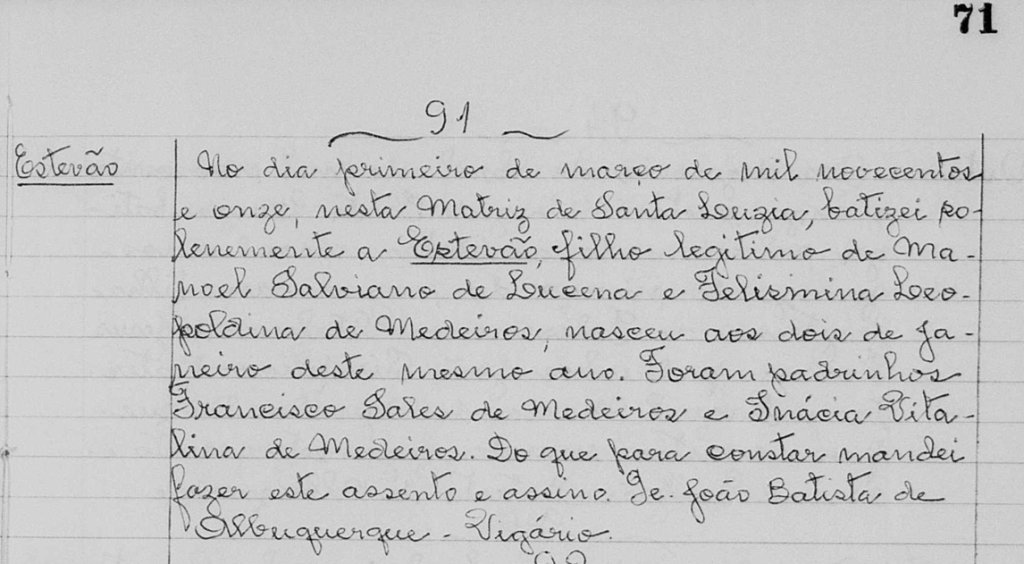 71
91
Estevão
No dia primeiro de março de mil novecentos
e onze, nesta Matriz de Santa Luzia, batizei so-
lenemente a Estevão, filho legitimo de Ma-
noel Salviano de Lucena e Felismina Leo-
poldina de Medeiros, nasceu aos dois de ja-
neiro deste mesmo ano. Foram padrinhos
Francisco Sales de Medeiros e Inácia Vita-
lina de Medeiros. Do que para constar mandei
fazer este assento e assino. Pe. João Batista de
Albuquerque - Vigário.